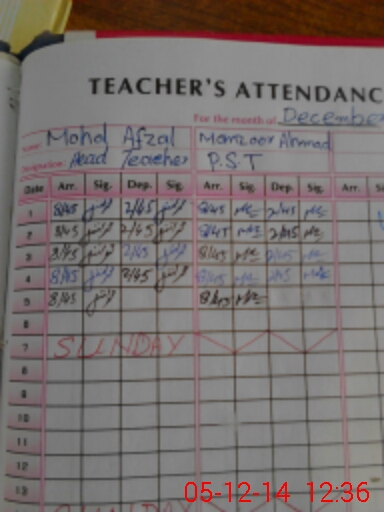 TEACHER'S ATTENDANC
For the month of December
Name: Mohd Afzal Manzoor Ahmad
Designation: Head Teacher P.S.T
Date Arr. Sig. Dep. Sig. Arr. Sig. Dep. Sig. Arr. Si
1 8/45 2/45 8/45 2/45
2 8/45 2/45 8/45 2/45
3 8/45 2/45 8/45 2/45
4 8/45 2/45 8/45 2/45
5 8/45 8/45
6
7 SUNDAY
8
9
10
11
12
13
SUNDAY
05-12-14 12:36